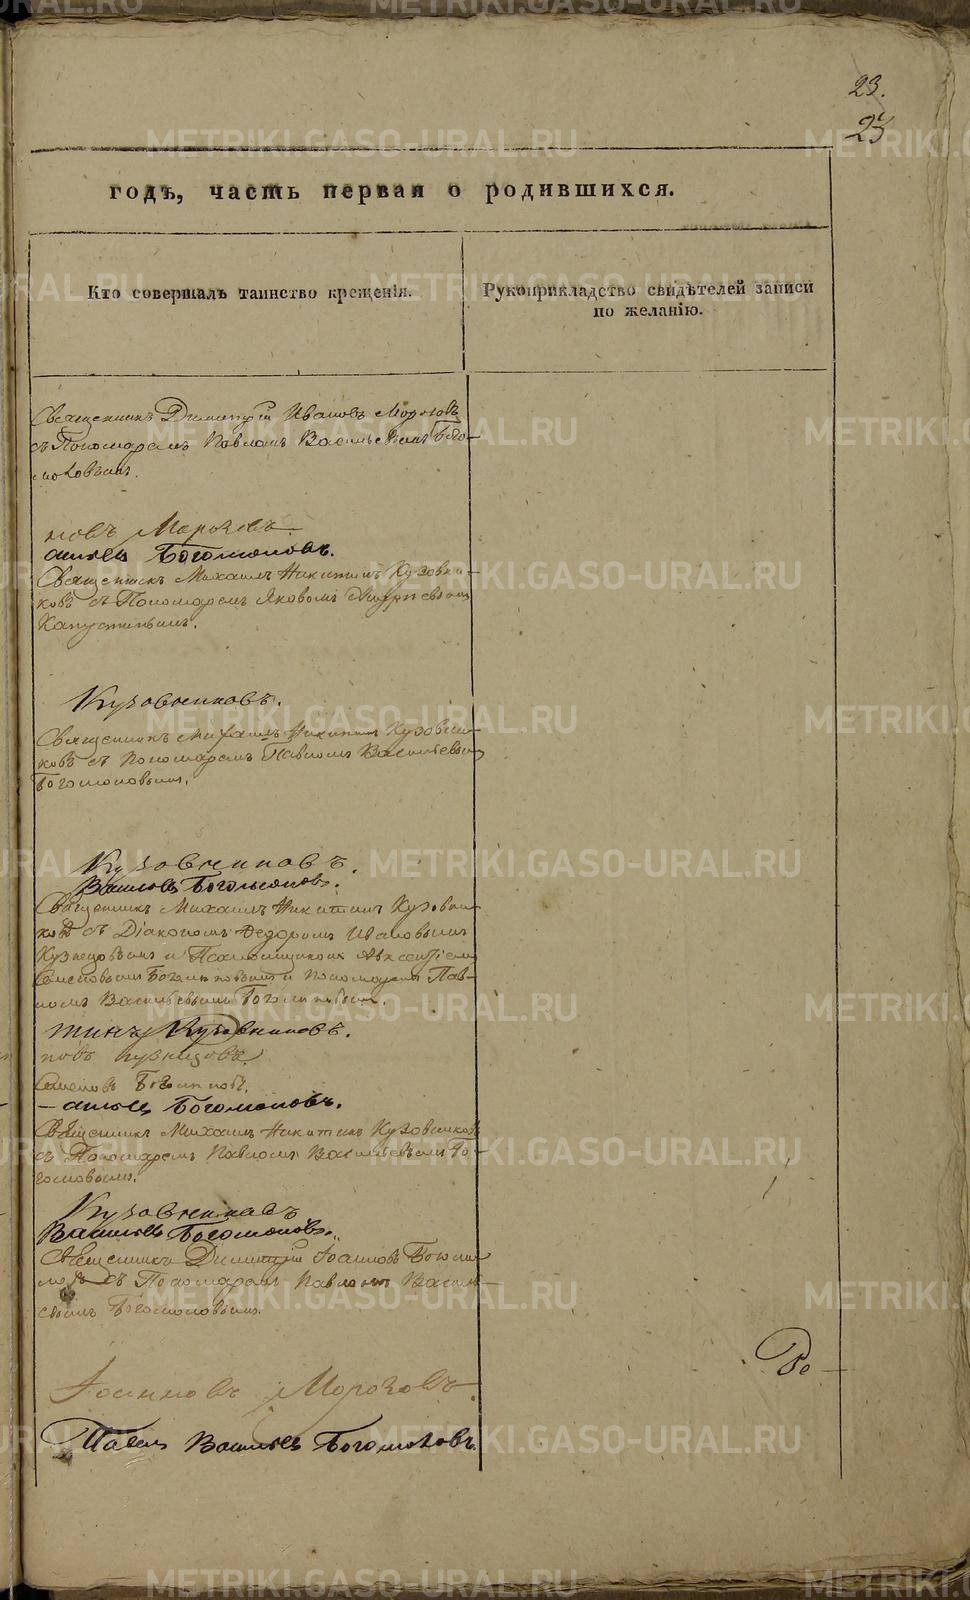 23.
23
годѣ, часть первая о родившихся.
Кто совершалъ таинство крещенія.
Рукоприкладство свидѣтелей записи
по желанію.
Священникъ Димитрій Ивановъ Морозовъ
съ Пономаремъ Павломъ Васильевымъ Бого-
моловымъ.
новъ Морозовъ
Богомоловъ.
Священникъ Михаилъ Никитинъ Кузовни-
ковъ съ Пономаремъ Яковомъ
Капустинымъ.
Кузовниковъ.
Священникъ Михаилъ Никитинъ Кузовни-
ковъ съ Пономаремъ Павломъ Васильевым
Богомоловымъ.
Кузовниковъ.
Васильевъ Богомоловъ.
Священникъ Михаилъ Никитинъ Кузовни-
ковъ съ Діакономъ Федоромъ Ивановымъ
Кузнецовымъ и
Семеновымъ Богомоловымъ и Пономаремъ Пав-
ломъ Васильевымъ Богомоловым.
тинъ Кузовниковъ.
новъ Кузнецовъ
Семеновъ
Богомоловъ.
Священникъ Михаилъ Никитинъ Кузовниковъ
съ Пономаремъ Павломъ Васильевымъ Бо-
гомоловымъ.
Кузовниковъ
Васильевъ Богомоловъ.
Священникъ Димитрій Іоанновъ
съ Пономаремъ Павломъ Василь-
евымъ Богомоловымъ.
Іоанновъ Морозовъ.
Павелъ Васильевъ Богомоловъ.
METRIKI.GASO-URAL.RU